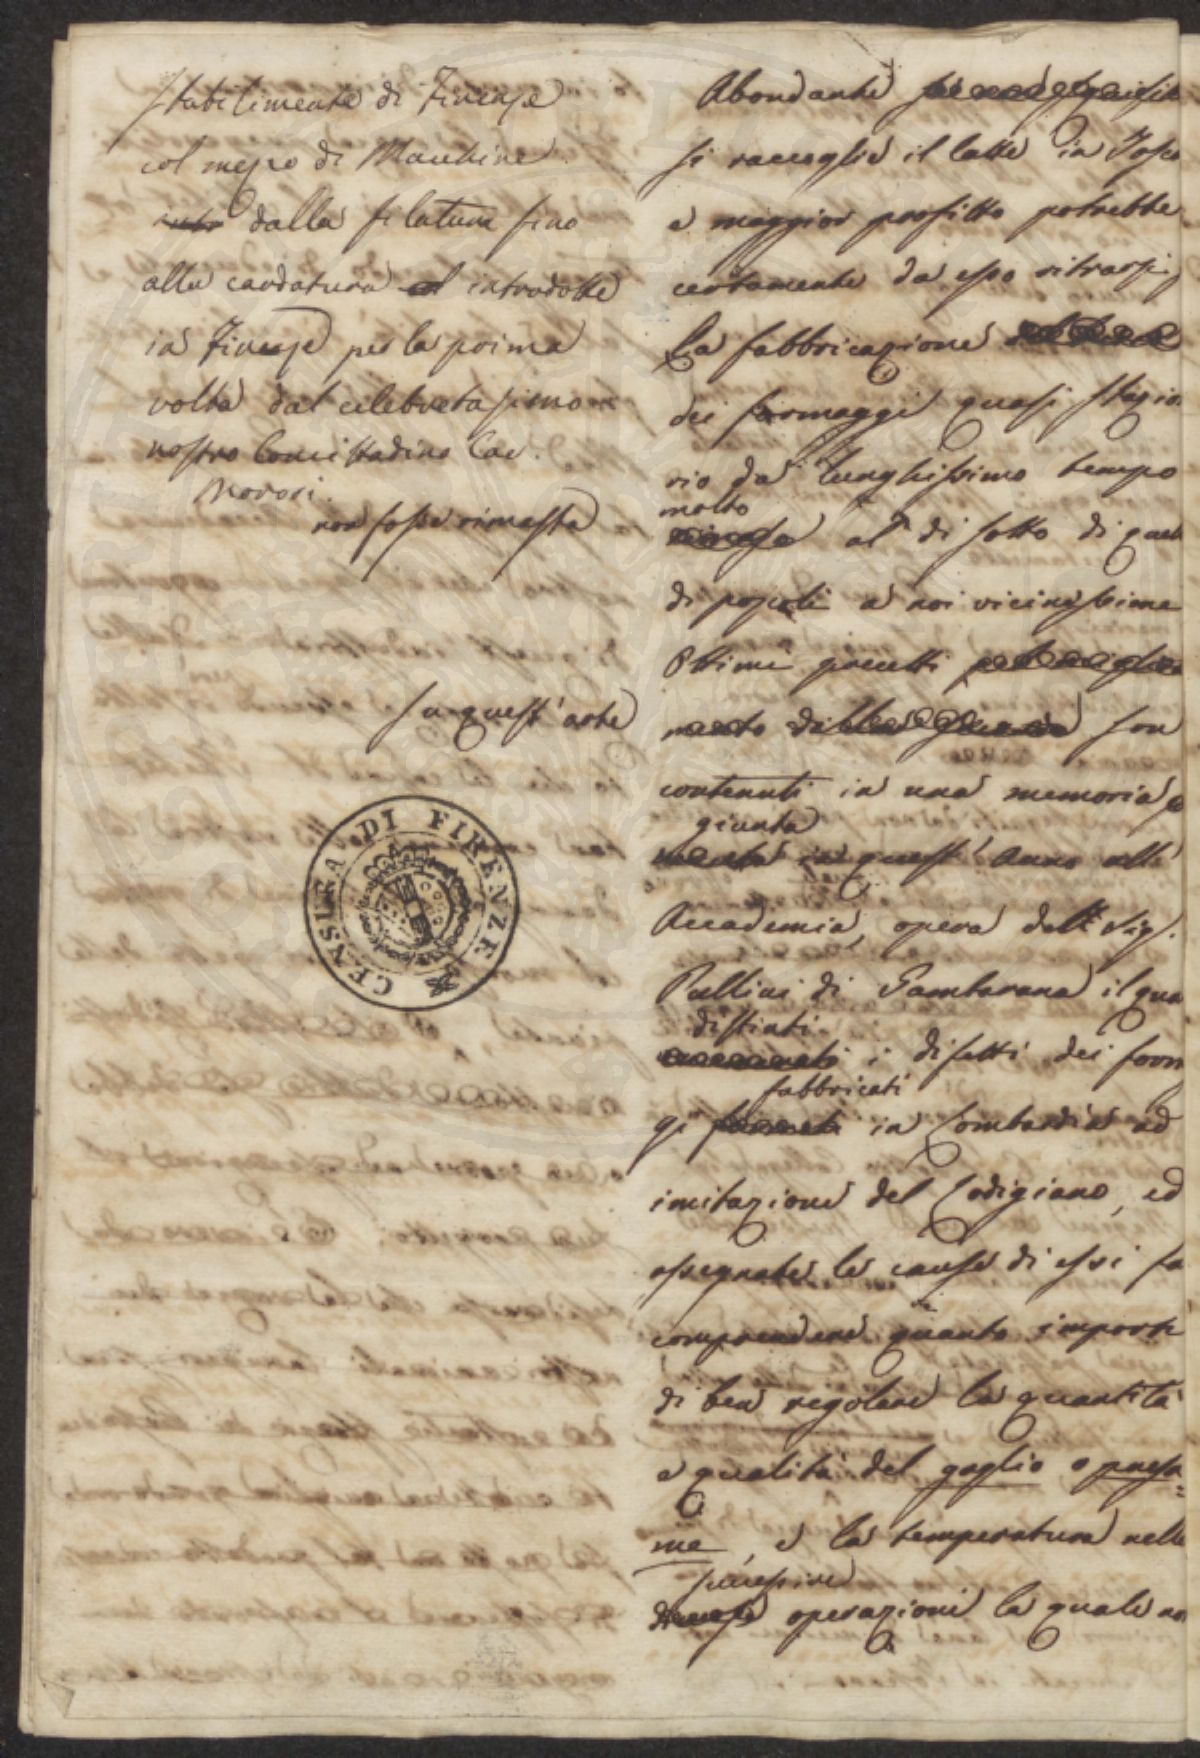 Stabilimento di Firenze
col mezzo di Macchine
dalla filatura fino
alla cardatura introdotte
in Firenze per la prima
volta dal celebratissimo
nostro Concittadino Cav.
Morosi.
non fosse rimasta
su quest'arte
CENSURA DI FIRENZE
Abondante
si raccoglie il latte in Tosca
e maggior profitto potrebbe
certamente da esso ritrarsi,
La fabbricazione
dei formaggi quasi stazio
rio da lunghissimo tempo
molto
al di sotto di quel
di popoli a noi vicinissimi
Ottimi precetti
mento son
contenuti in una memoria
giunta
in quest'Anno all'
Accademia, opera del Sig.
Pullini di Gambarana il qua
distinti
i difetti dei form
fabbricati
gi in Lombardia ad
imitazione del Lodigiano, ed
assegnate le cause di essi fa
comprendere quanto importi
di ben regolare la quantità
e qualità del gaglio o presa=
me, e la temperatura nelle
successive
operazioni la quale no